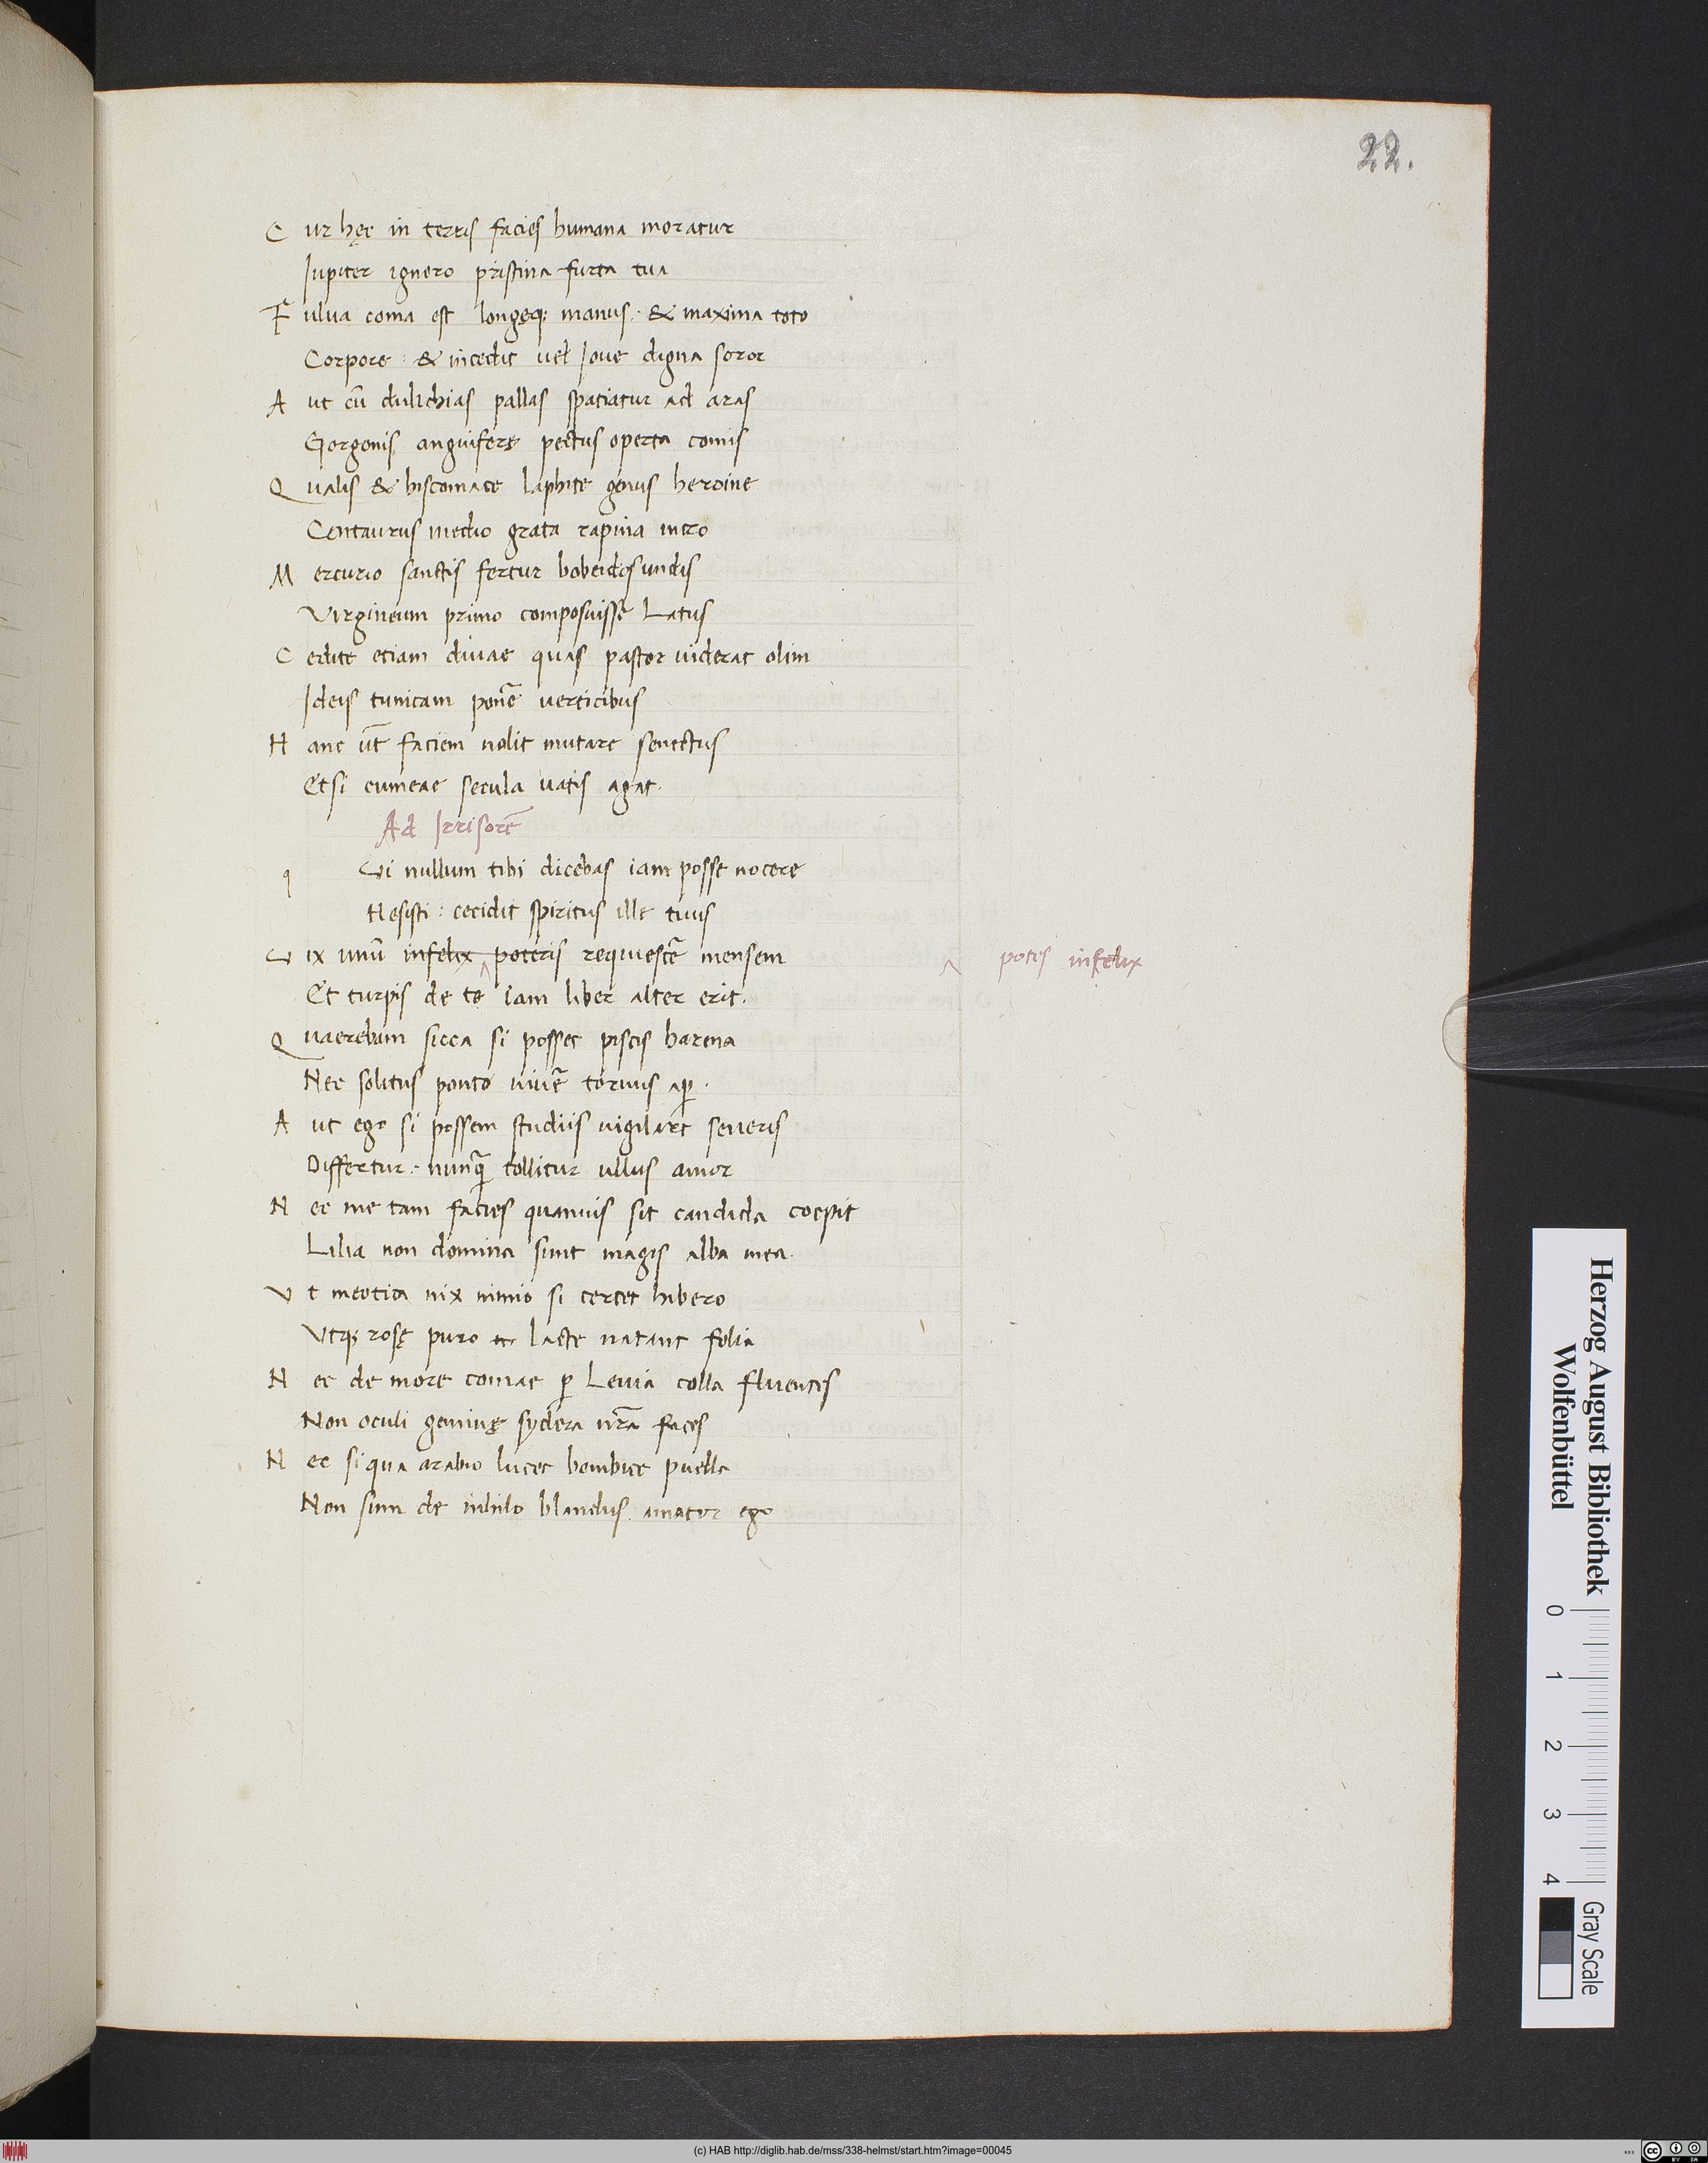 22.
C ur hęc in terris facies humana moratur
Iupiter ignero pristina furta tua
F ulua coma est longęq; manus: & maxima toto
Corpore: & incedit uel Ioue digna soror
A ut cū dulichias pallas spatiatur ad aras
Gorgonis anguiferę pectus operta comis
Q ualis & hiscomace laphite genus heroine
Centaurus medio grata rapina mero
M ercurio sanctis fertur bobeidos undis
Virgineum primo composuisse Latus
C edite etiam diuae quas pastor uiderat olim
Ideis tunicam ponē uerticibus
H anc ut̄ faciem nolit mutare senectus
Etsi cumeae secula uatis agat.
Ad Irrisorē
q Vi nullum tibi dicebas iam posse nocere
Hesisti: cecidit spiritus ille tuus
V ix unū infelix poteris requiescē mensem potis infelix
Et turpis de te iam liber alter erit.
Q uaerebam sicca si posset piscis harena
Nec solitus ponto uiuē toruus ap.
A ut ego si possem studiis uigilare seueris
Differtur: nunq̄ tollitur ullus amor
N ec me tam facies quamuis sit candida coepit
Lilia non domina sunt magis alba mea.
V t meotica nix nimio si certet hibero
Vtq; rosę puro lacte natant folia
N ec de more comae p Leuia colla fluentes
Non oculi geminę sydera nr̄a faces
N ec si qua arabio lucet bombice puella
Non sum de nihilo blandus amator ego
Herzog August Bibliothek
Wolfenbüttel
0 1 2 3 4
Gray Scale
(c) HAB http://diglib.hab.de/mss/338-helmst/start.htm?image=00045